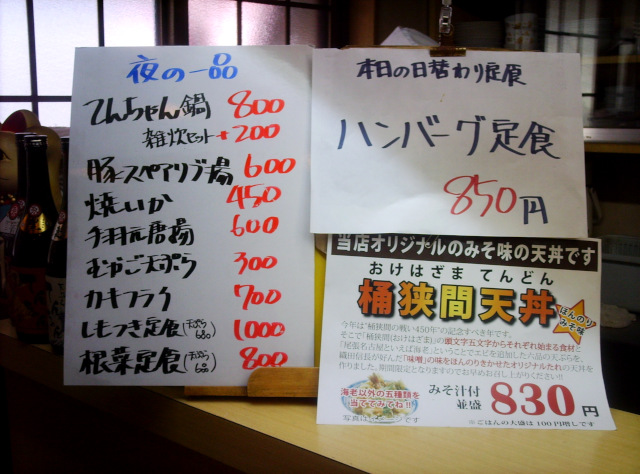 夜の一品
てんちゃん鍋 800
雑炊セット+200
豚スペアリブ揚 600
焼いか 450
手羽元唐揚 600
むかご天ぷら 300
カキフライ 700
しもつき定食(天ぷら 680) 1000
根菜定食(天ぷら 600) 800
本日の日替わり定食
ハンバーグ定食
850円
当店オリジナルのみそ味の天丼です
おけはざま てんどん
桶狭間天丼
ほんのりみそ味
今年は"桶狭間の戦い450年"の記念すべき年です。
そこで「桶狭間(おけはざま)」の頭文字五文字からそれぞれ始まる食材と
「尾張名古屋といえば海老」ということでエビを追加した六品の天ぷらを、
織田信長が好んだ「味噌」の味をほんのりきかせたオリジナルたれの天丼を
作りました。期間限定となりますのでお早めお召し上がりください!!
海老以外の五種類を
当ててみてね!!
写真はイメージです
みそ汁付
並盛 830円
※ごはんの大盛は100円増しです